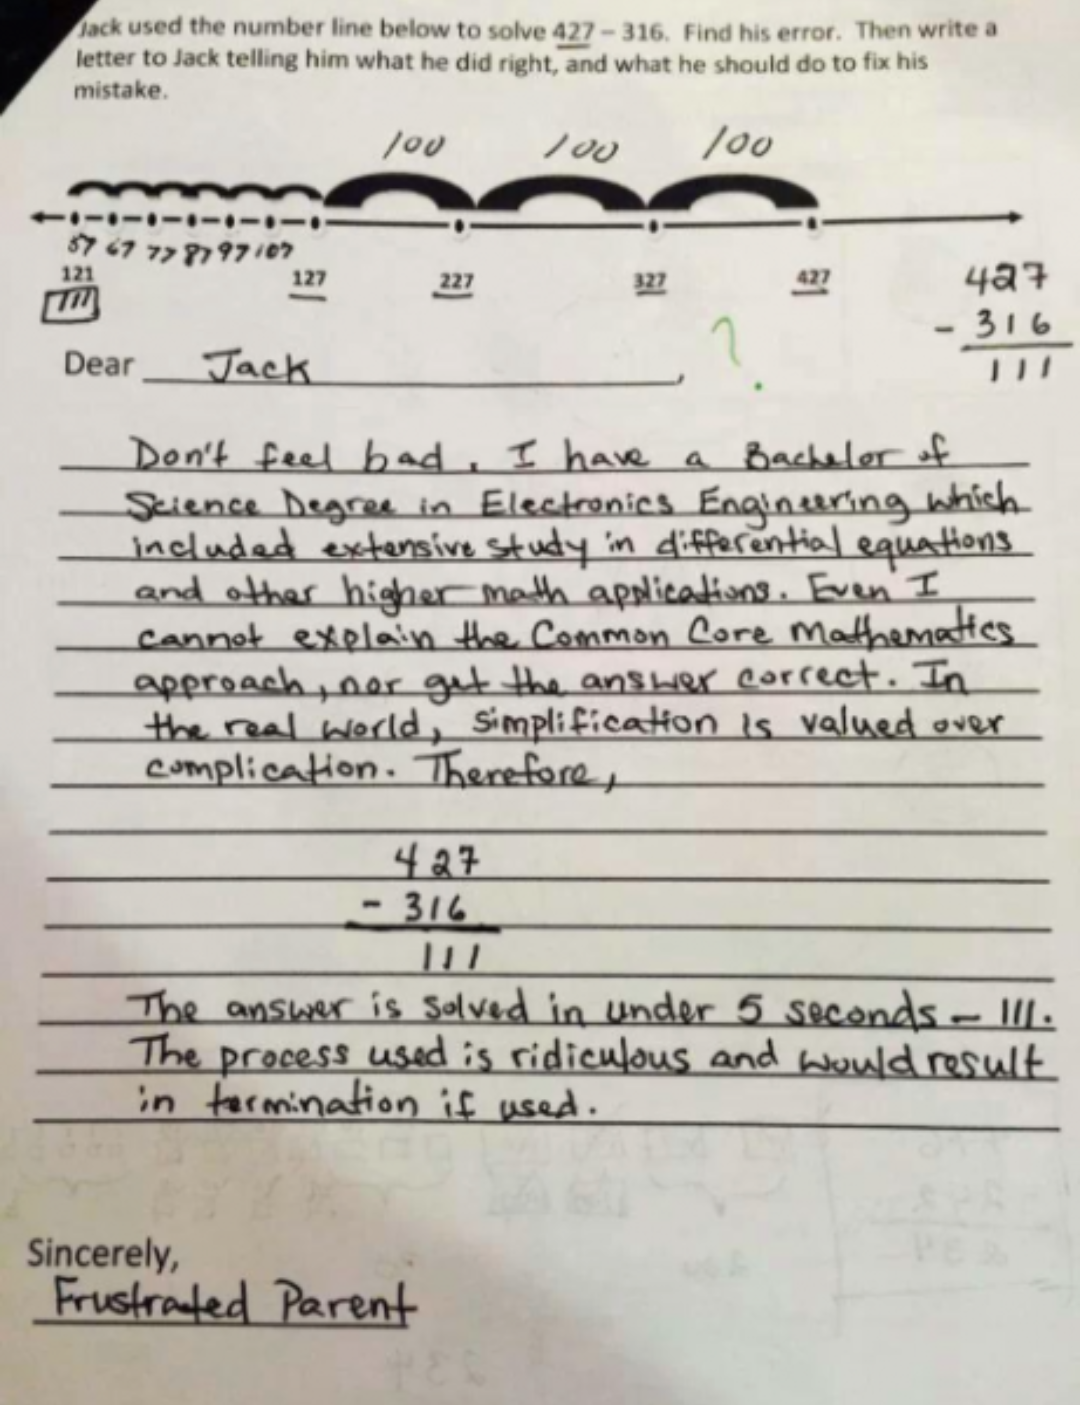 Jack used the number line below to solve 427 – 316. Find his error. Then write a
letter to Jack telling him what he did right, and what he should do to fix his
mistake.
100 100 100
57 67 77 87 97 107
121 127 227 327 427
111
427
- 316
111
?
Dear Jack,
Don't feel bad. I have a Bachelor of
Science Degree in Electronics Engineering which
included extensive study in differential equations
and other higher math applications. Even I
cannot explain the Common Core Mathematics
approach, nor get the answer correct. In
the real world, simplification is valued over
complication. Therefore,
427
- 316
111
The answer is solved in under 5 seconds — 111.
The process used is ridiculous and would result
in termination if used.
Sincerely,
Frustrated Parent